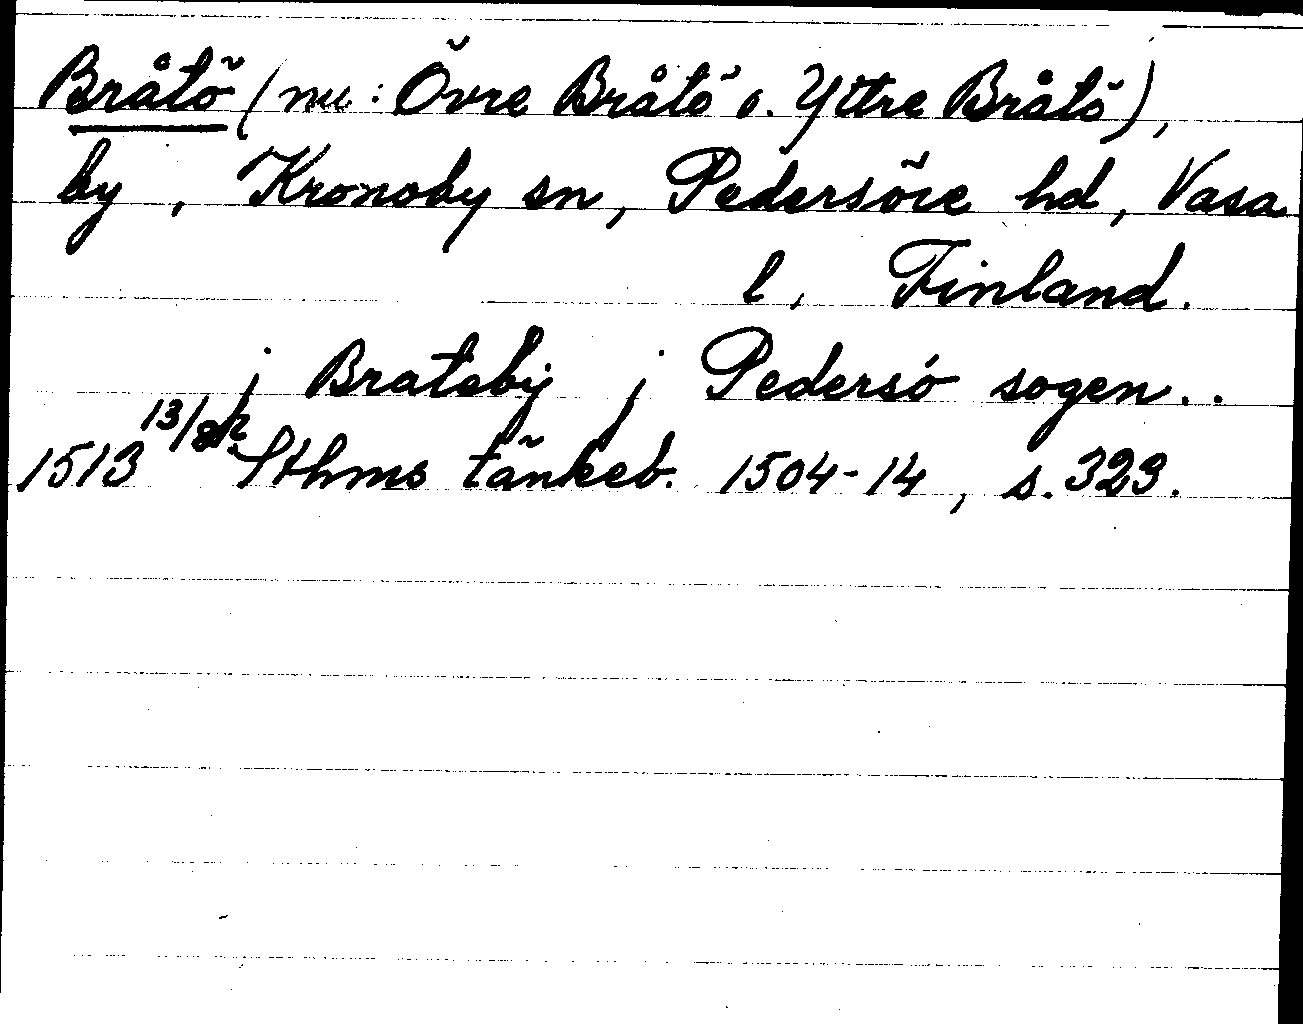 Bråtö (nu: Övre Bråtö o. Yttre Bråtö),
by, Kronoby sn, Pedersöre hd, Vasa
l, Finland.
j Brateby j Pedersö sogen..
1513 13/8 Sthms tänkeb. 1504-14, s. 323.